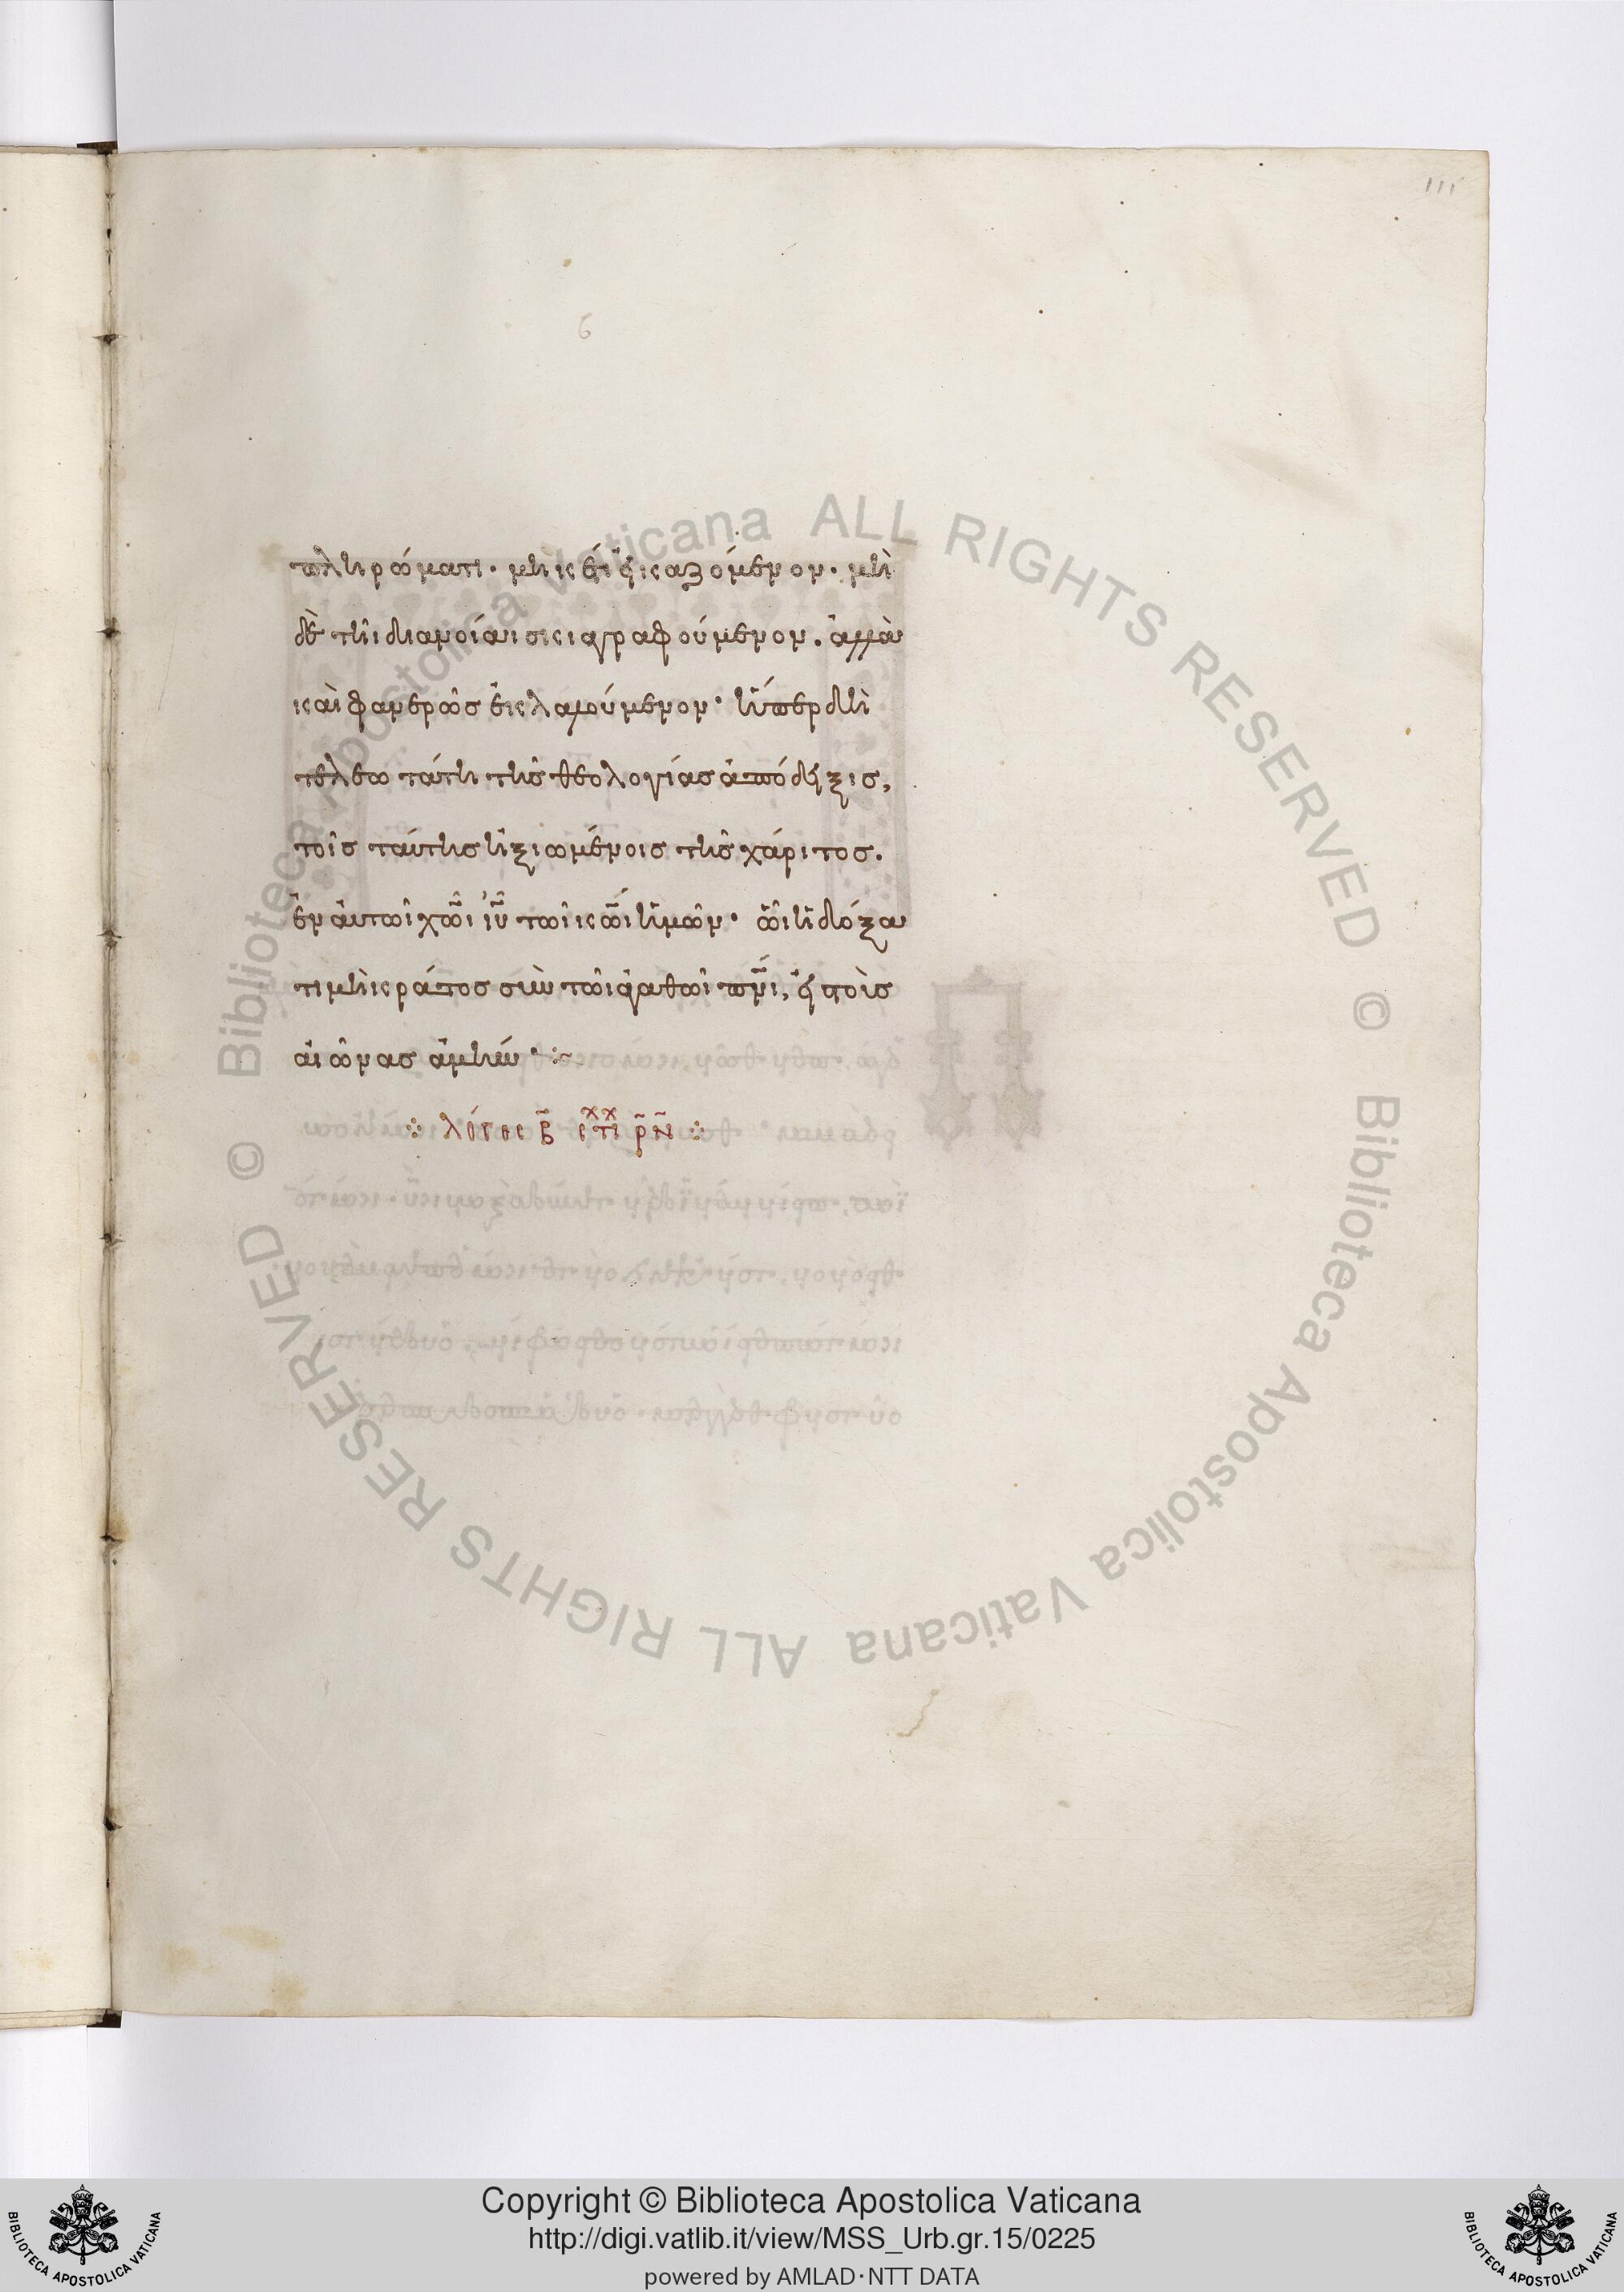 111
6
πληρώματι· μηκέτι εἰκαζόμενον· μὴ
δὲ τῆι διανοίαι σκιαγραφούμενον. ἀλλὰ
καὶ φανερῶσ ἐκλαλούμενον· ἥπερ δὴ
τελεωτάτη τῆσ θεολογίασ ἀπόδειξισ,
τοῖσ ταύτησ ἠξιωμένοισ τῆσ χάριτοσ.
ἐν αὐτῶι χῶι ἰῦ τῶι κῶι ἡμῶν· ὧι ἡ δόξα
τιμὴ κράτοσ σὺν τῶι ἀγαθῶι πνι, εἰς τοὺσ
αἰῶνασ ἀμήν· :~
λόγος β στι ρν
Biblioteca Apostolica Vaticana ALL RIGHTS RESERVED © Biblioteca Apostolica Vaticana ALL RIGHTS RESERVED ©
Copyright © Biblioteca Apostolica Vaticana
http://digi.vatlib.it/view/MSS_Urb.gr.15/0225
powered by AMLAD·NTT DATA
BIBLIOTECA APOSTOLICA VATICANA
BIBLIOTECA APOSTOLICA VATICANA